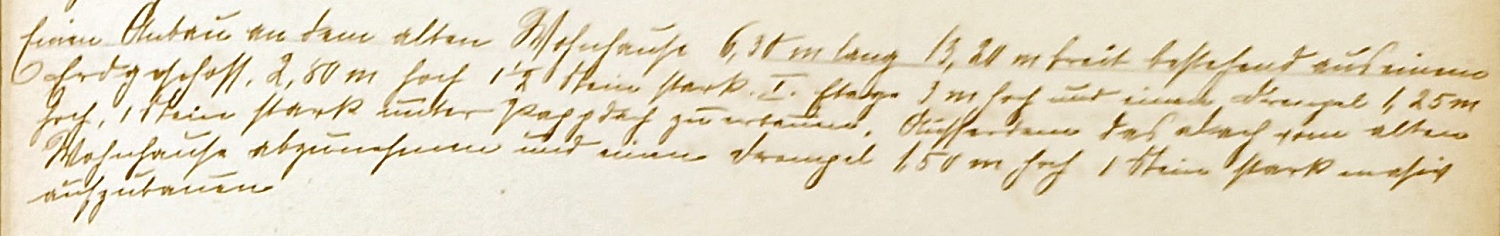 Einen Anbau an dem alten Wohnhause 6,30 m lang 13,20 m breit bestehend aus einem
Erdgeschoss, 2,80 m hoch 1½ Stein stark. I. Etage 3 m hoch und einen Drempel 1,25 m
hoch, 1 Stein stark unter Pappdach zu erbauen. Ausserdem das Dach vom alten
Wohnhause abzunehmen und einen Drempel 1,50 m hoch 1 Stein stark massiv
aufzubauen